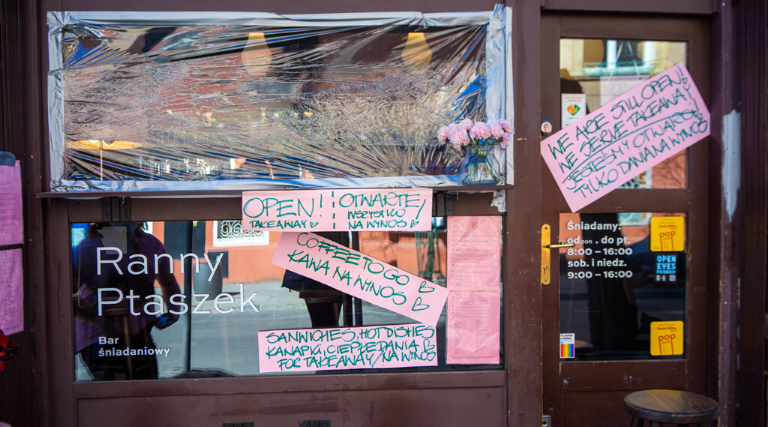 WE ARE STILL OPEN!
WE SERVE TAKEAWAY!
JESTEŚMY OTWARCI!
TYLKO DANIA NA WYNOS
OPEN!
TAKEAWAY
OTWARTE!
WSZYSTKO
NA WYNOS
COFFEE TO GO
KAWA NA WYNOS
SANWICHES, HOT DISHES
KANAPKI, CIEPŁE DANIA
FOR TAKEAWAY/NA WYNOS
Ranny
Ptaszek
Bar
śniadaniowy
Śniadamy:
od pon. do pt.
8:00 – 16:00
sob. i niedz.
9:00 – 16:00
OPEN
EYES
pop
pop